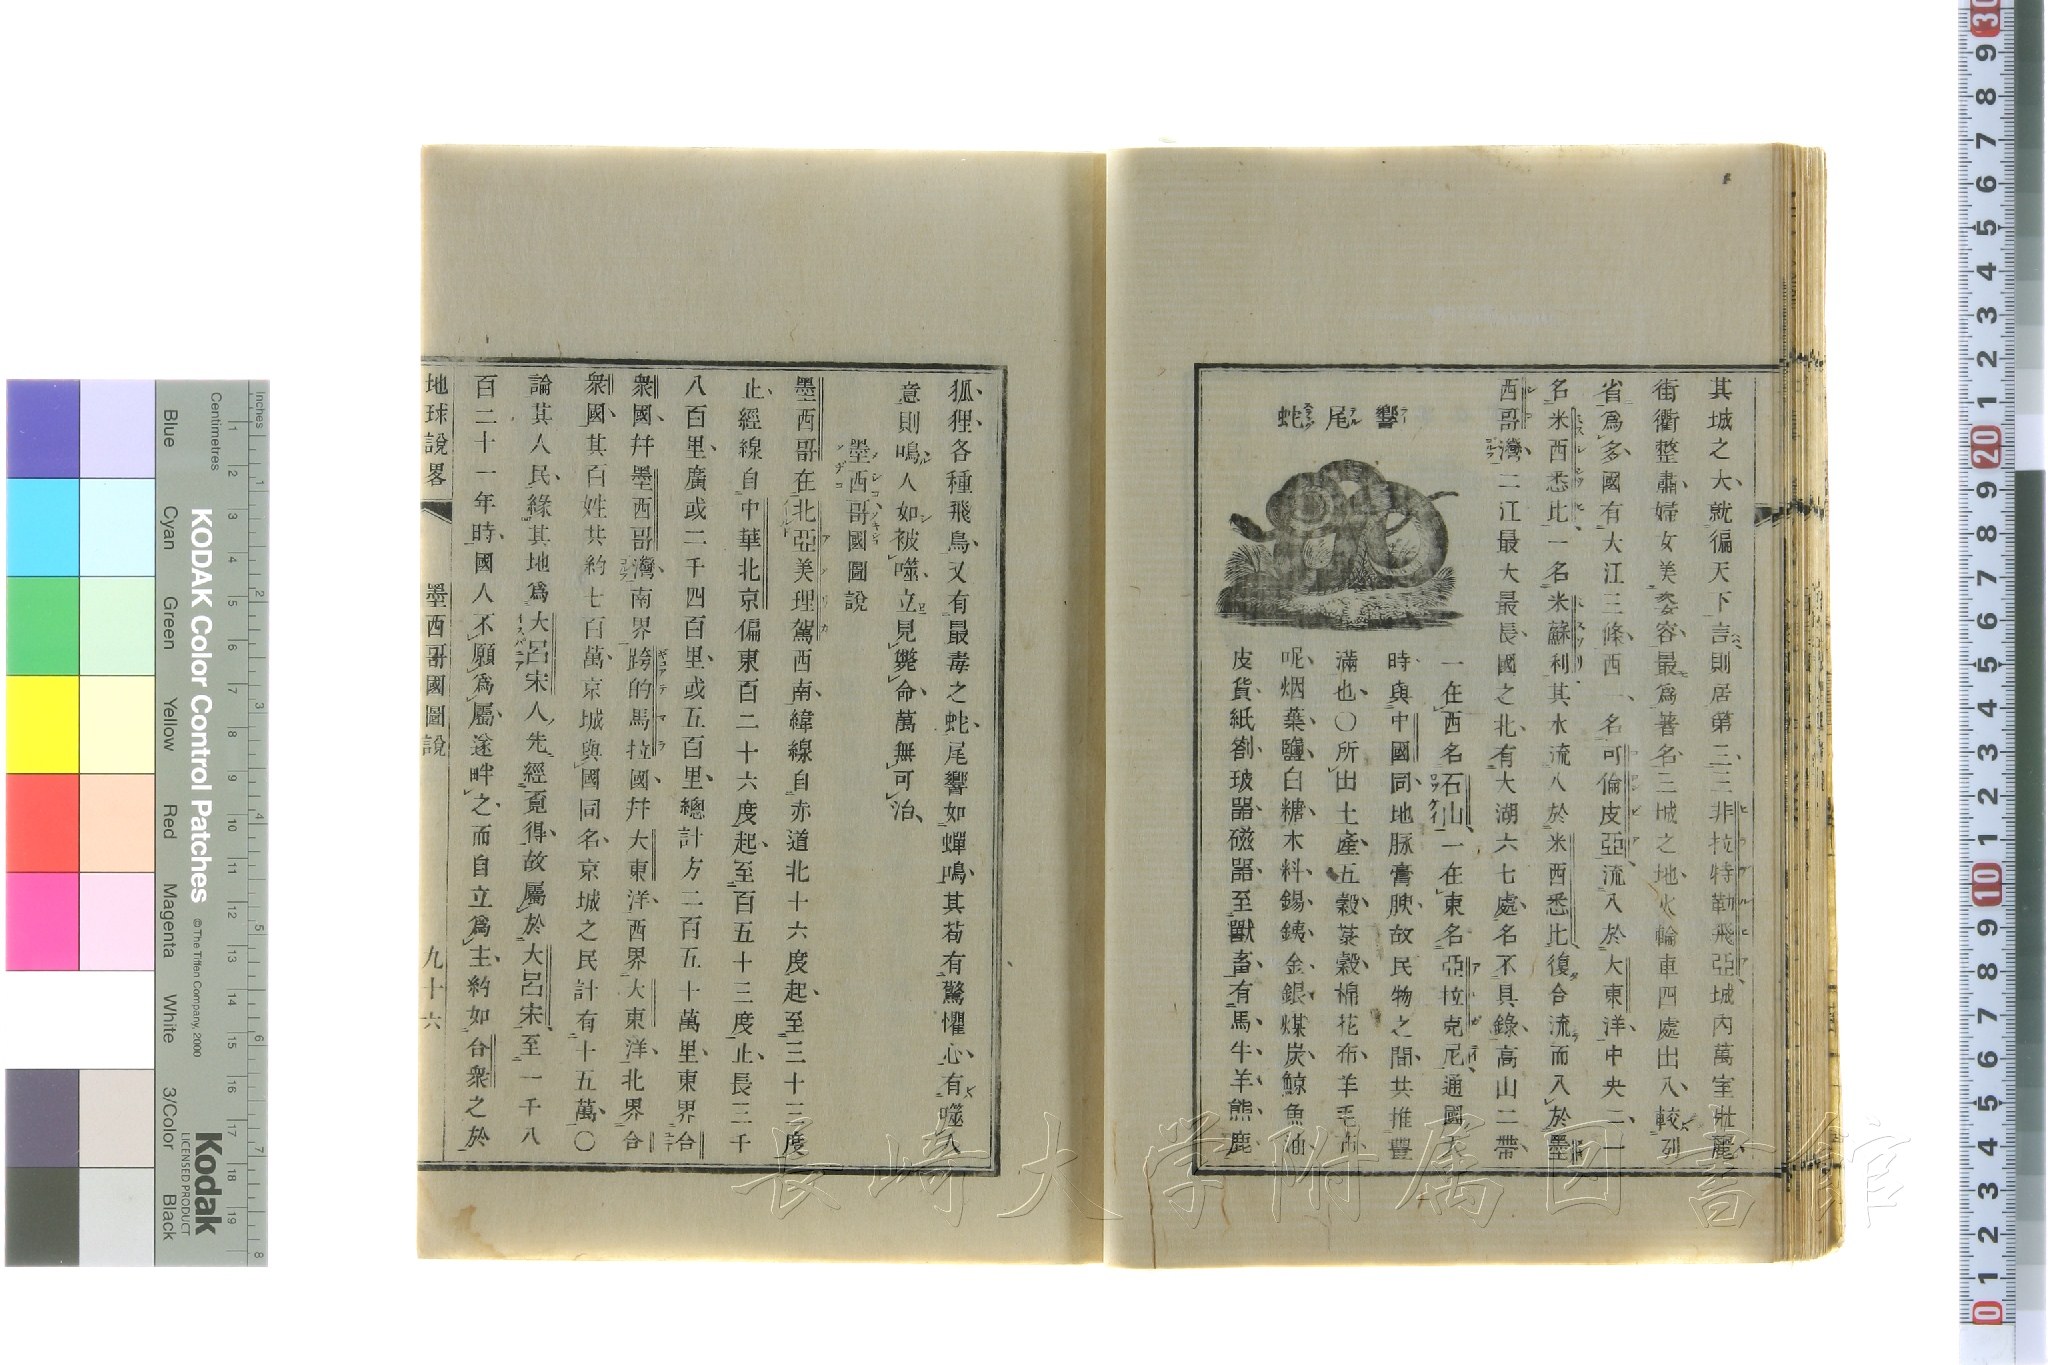 其城之大就徧天下言則居第三三非拉特勒飛亞城內萬室壯麗
街衢整肅婦女美姿容最爲著名三城之地火輪車四處出入較列
省爲多國有大江三條西一名可倫皮亞流入於大東洋中央二一
名米西悉比一名米蘇利其水流入於米西悉比復合流而入於墨
西哥灣二江最大最長國之北有大湖六七處名不具錄高山二帶
響尾蛇
一在西名石山一在東名亞拉克尼通國天
時與中國同地脉膏腴故民物之閒共推豐
滿也〇所出土產五穀菉穀棉花布羊毛布
呢烟葉鹽白糖木料錫銕金銀煤炭鯨魚油
皮貨紙劄玻噐磁噐至獸畜有馬牛羊熊鹿
狐狸各種飛鳥又有最毒之蛇尾響如蟬鳴其苟有驚懼心有噬人
意則鳴人如被噬立見斃命萬無可治
墨西哥國圖說
墨西哥在北亞美理駕西南緯線自赤道北十六度起至三十三度
止經線自中華北京偏東百二十六度起至百五十三度止長三千
八百里廣或二千四百里或五百里總計方二百五十萬里東界合
衆國幷墨西哥灣南界跨的馬拉國幷大東洋西界大東洋北界合
衆國其百姓共約七百萬京城與國同名京城之民計有十五萬〇
論其人民緣其地爲大呂宋人先經覓得故屬於大呂宋至一千八
百二十一年時國人不願爲屬遂畔之而自立爲主約如合衆之於
地球說畧 墨西哥國圖說 九十六
KODAK Color Control Patches
© The Tiffen Company, 2000
Kodak
LICENSED PRODUCT
Inches
Centimetres
Blue Cyan Green Yellow Red Magenta White 3/Color Black
長崎大学附属図書館